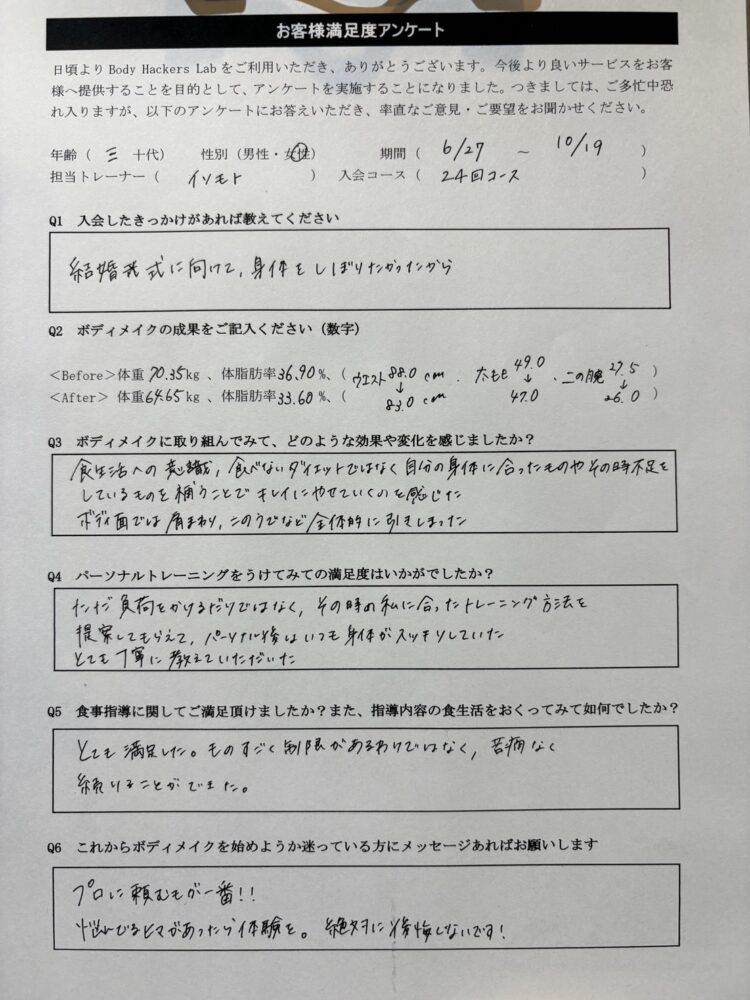 お客様満足度アンケート
日頃より Body Hackers Lab をご利用いただき、ありがとうございます。今後より良いサービスをお客
様へ提供することを目的として、アンケートを実施することになりました。つきましては、ご多忙中恐
れ入りますが、以下のアンケートにお答えいただき、率直なご意見・ご要望をお聞かせください。
年齢（ 三 十代） 性別（男性・女性） 期間（ 6/27 ～ 10/19 ）
担当トレーナー（ イソモト ） 入会コース（ 24回コース ）
Q1 入会したきっかけがあれば教えてください
結婚式に向けて、身体をしぼりたかったから
Q2 ボディメイクの成果をご記入ください（数字）
<Before>体重70.35kg 、体脂肪率36.90%、（ ウエスト88.0cm . 太もも49.0 . 二の腕27.5 ）
↓ ↓ ↓
<After> 体重64.65kg 、体脂肪率33.60%、（ 83.0cm 47.0 26.0 ）
Q3 ボディメイクに取り組んでみて、どのような効果や変化を感じましたか？
食生活への意識、食べないダイエットではなく自分の身体に合ったものやその時不足を
しているものを補うことでキレイにやせていくのを感じた
ボディ面では肩まわり、二のうでなど全体的に引きしまった
Q4 パーソナルトレーニングをうけてみての満足度はいかがでしたか？
ただ負荷をかけるだけではなく、その時の私に合ったトレーニング方法を
提案してもらえて、パーソナル後はいつも身体がスッキリしていた
とても丁寧に教えていただいた
Q5 食事指導に関してご満足頂けましたか？また、指導内容の食生活をおくってみて如何でしたか？
とても満足した。ものすごく制限があるわけではなく、苦痛なく
続けることができた。
Q6 これからボディメイクを始めようか迷っている方にメッセージあればお願いします
プロに頼むもが一番！！
悩んでるヒマがあったら体験を。絶対に後悔しないです！